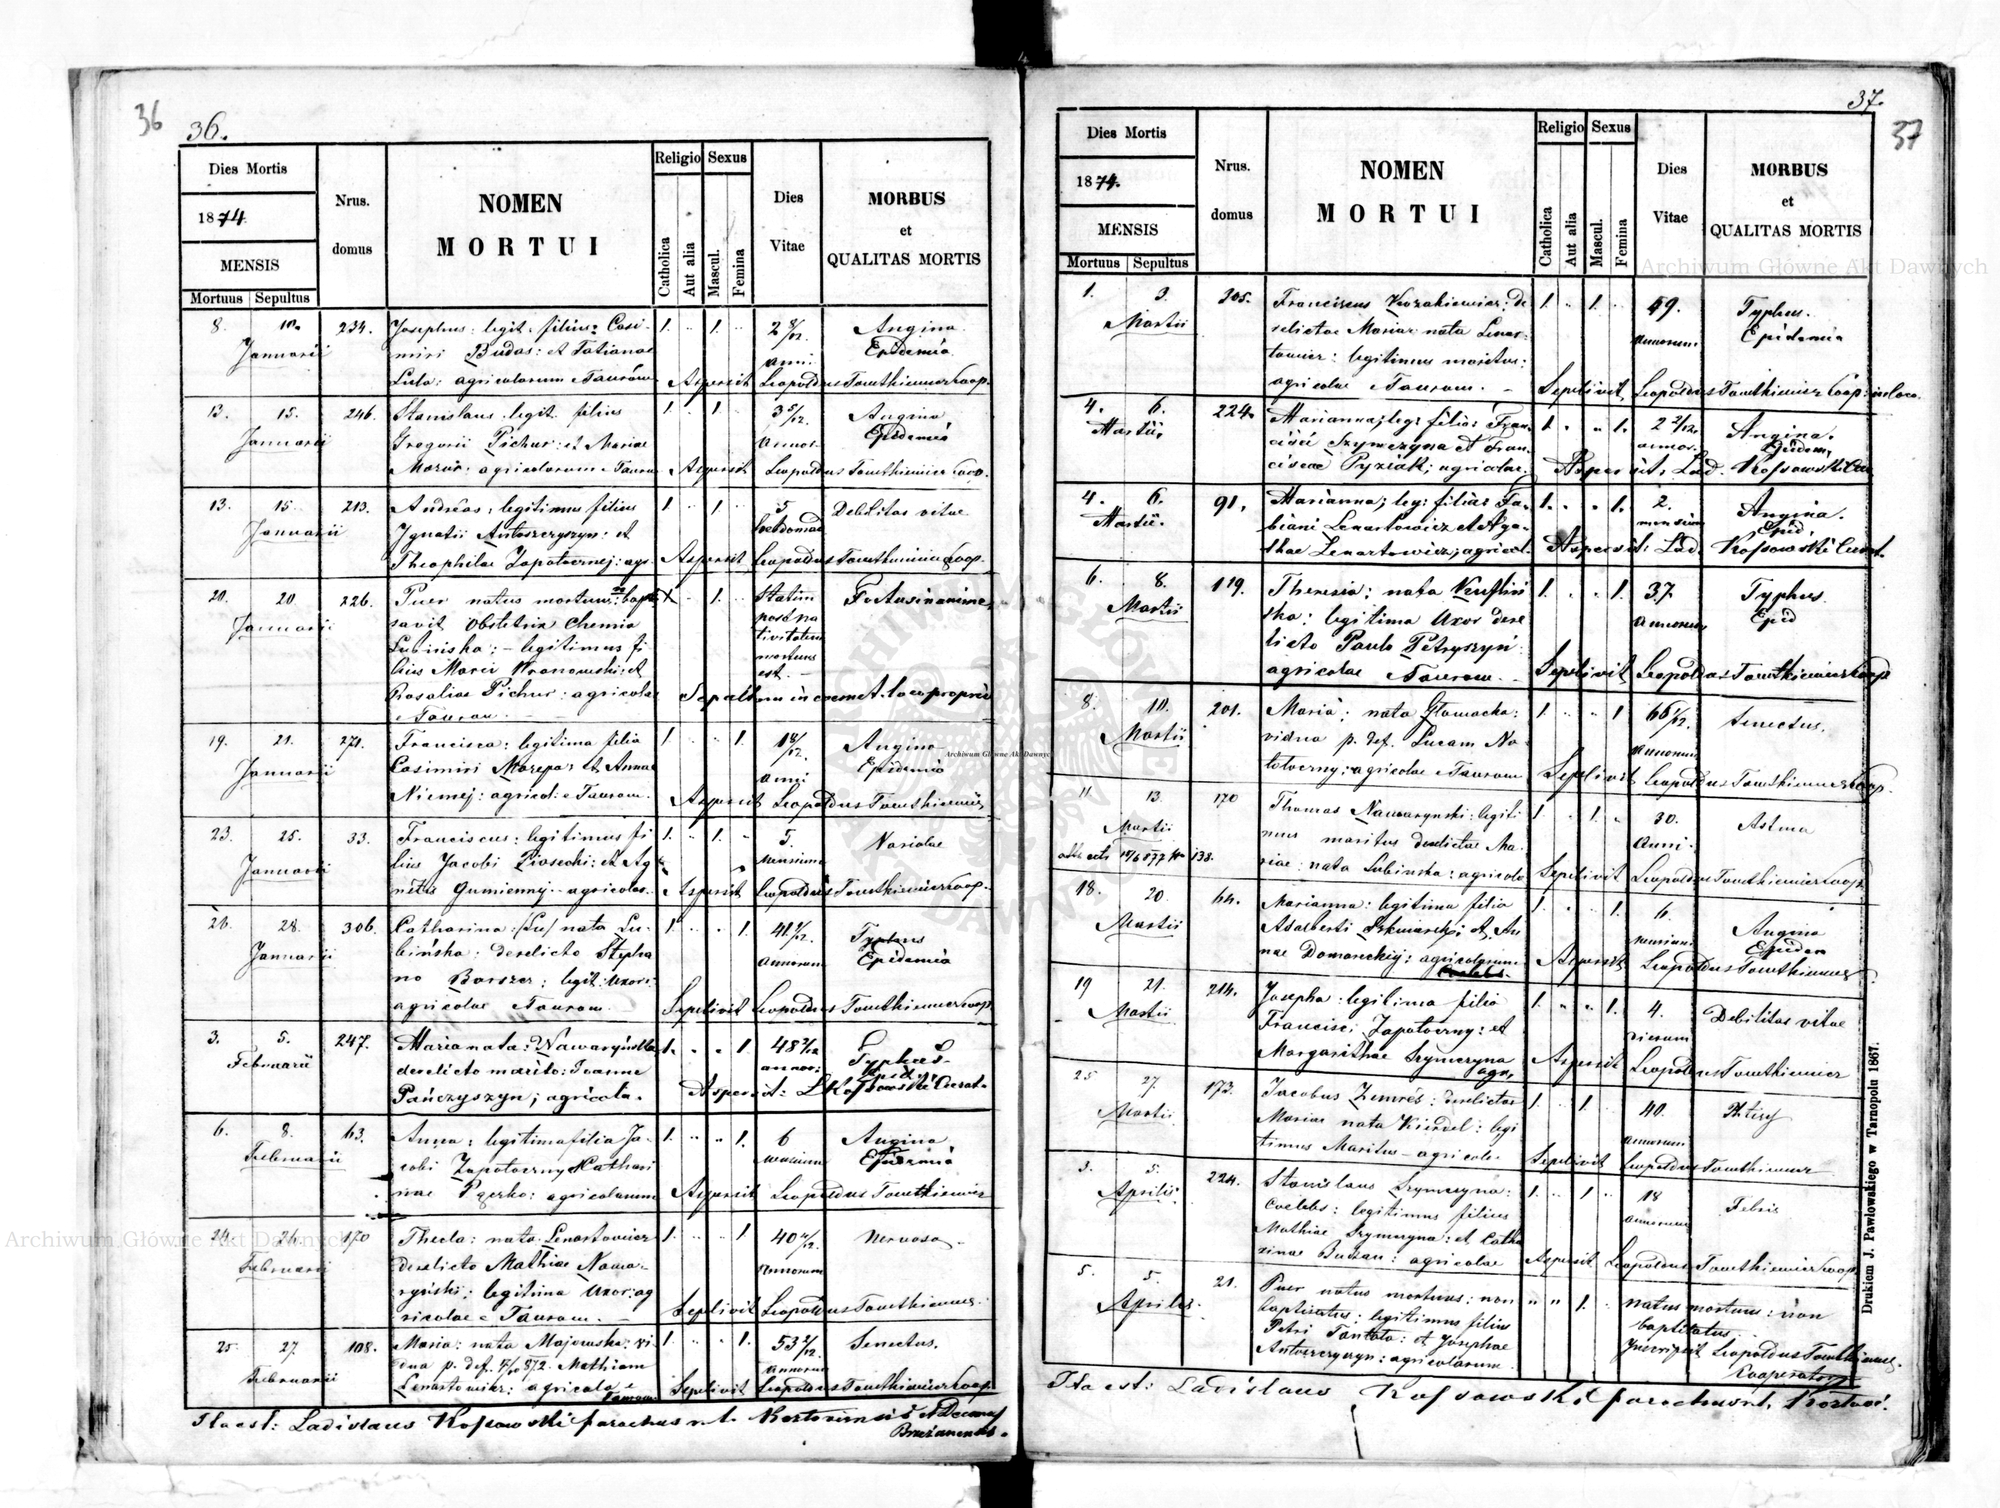 36
36.
Dies Mortis
1874
MENSIS
Mortuus Sepultus
Nrus.
domus
NOMEN
MORTUI
Religio Sexus
Catholica
Aut alia
Mascul.
Femina
Dies
Vitae
MORBUS
et
QUALITAS MORTIS
8. 10. 234. Josephus: legit: filius: Casi- 1. " 1. " 2 8/12 Angina
Januarii miri Budas: et Tatianae anni Epidemia
Lula: agricolarum e Taurów Aspersit Leopoldus Coop.
13. 15. 246. Stanislaus legit. filius 1. 1. 3 5/12 Angina
Januarii Gregorii Pichur: et Mariae annor. Epidemia
Mazur: agricolarum e Taurow Aspersit Leopoldus Coop.
13. 15. 213. Andreas: legitimus filius 1 1 5 Debilitas vitae
Januarii Ignatii Antoszczyszyn: et hebdomad
Theophilae Zapotocznej: agr Aspersit Leopoldus Coop.
20. 20 226. Puer natus mortuus: bapti 1. Statim Foetus inanime
Januarii savit Obstetrix Chemia post na
Lubińska: - legitimus fi tivitatem
lius Marci Wronowski: et mortuus est.
Rosaliae Pichur: agricolae Sepultum in coemet. loco proprio
e Taurow.
19. 21. 271. Francisca: legitima filia 1. 1. 1 8/12 Angina
Januarii Casimiri Mazepa: et Annae anni Epidemia
Niemej: agricol: e Taurow. Aspersit Leopoldus
23. 25. 33. Franciscus: legitimus fi 1. 1. 5. Variolae
Januarii lius Jacobi Piasecki: et Ag mensium
netis Gumiennij - agricolae. Aspersit Leopoldus Coop.
26. 28. 306. Catharina nata Lu- 1. 1. Typhus
Januarii bińska: derelicto Stepha annorum Epidemia
no Barszcz: legit: Uxor:
agricolae e Taurow. Sepelivit Leopoldus Coop.
3. 5. 247. Maria nata: Nawaryńska 1. " " 1. 48 2/12 Typhus
Februarii derelicto marito: Ioanne annor: Epid:
Pańczyszyn; agricola. Aspersit: L Kossowski Curat.
6. 8. 63. Anna: legitima filia Ja- 1. " " 1. 6 Angina
Februarii cobi Zapotoczny et Cathari mensium Epidemia
nae Pączko: agricolarum Aspersit Leopoldus
24. 26. 170 Thecla: nata Lenartowicz 1. 1. Nervosa
Februarii derelicto Mathiae Nawa- Annorum
ryński: legitima Uxor: ag
ricolae e Taurow. Sepelivit Leopoldus
25. 27. 108. Maria: nata Majewska: vi 1. 1. 53 2/12 Senectus.
Februarii dua p. def. Mathiam annorum
Lenartowicz: agricola e Taurow Sepelivit Leopoldus Coop.
Ita est: Ladislaus Kossowski parochus
37.
37
Dies Mortis
1874.
MENSIS
Mortuus Sepultus
Nrus.
domus
NOMEN
MORTUI
Religio Sexus
Catholica
Aut alia
Mascul.
Femina
Dies
Vitae
MORBUS
et
QUALITAS MORTIS
1. 3. 305. Franciscus Kozakiewicz: de 1. " 1. " 49. Typhus.
Martii relictae Mariae nata Lenar annorum Epidemia
towicz: legitimus maritus:
agricolae e Taurow. Sepelivit Leopoldus Coop:
4. 6. 224. Marianna; leg: filia: Fran- 1. " " 1. 2 2/12. Angina.
Martii. cisci Szymczyna et Fran- annos. Epidem.
ciscae Pyziak; agricolae. Aspersit: Lad. Kossowski
4. 6. 91. Marianna; leg: filia: Fa- 1. " " 1. 2. Angina.
Martii. biani Lenartowicz et Aga- mensium Epid.
thae Lenartowicz; agricol. Aspersit: Lad. Kossowski Curat.
6. 8. 119. Theresia: nata 1. " " 1. 37 Typhus
Martii legitima Uxor dere annorum Epid
licto Paulo Petryszyn
agricolae e Taurow. Sepelivit Leopoldus Coop
8. 10. 201. Maria: nata Głowacka: 1. " " 1 Senectus.
Martii vidua p. def. Lucam annorum
agricolae e Taurow Sepelivit Leopoldus Coop.
11 13. 170 Thomas Nawaryński: legiti 1. " 1. " 30. Astma
Martii mus maritus derelictae Ma anni.
138. riae: nata Lubinska: agricola Sepelivit Leopoldus Coop
18. 20 64. Marianna: legitima filia 1. 1. 6. Angina
Martii Adalberti et An mensium Epidem
nae Domareckij: agricolarum Aspersit Leopoldus
19 21. 214. Josepha: legitima filia 1. " " 1. 4. Debilitas vitae
Martii Francisci Zapotoczny: et dierum
Margarithae Szymczyna agr. Aspersit Leopoldus
25 27. 173. Jacobus derelictae 1. 1. 40.
Martii Mariae nata Kierdel: legi annorum
timus Maritus - agricola Sepelivit Leopoldus
3. 5. 224. Stanislaus Szymczyna: 1. " 1 " 18 Febris
Aprilis Coelebs: legitimus filius annorum
Mathiae Szymczyna: et Catha
rinae agricolae Aspersit Leopoldus Coop
5. 5. 21. Puer natus mortuus: non " " 1. natus mortuus: non
Aprilis. baptisatus: legitimus filius baptisatus
Petri et Josephae Inscripsit Leopoldus
Antoszczyszyn: agricolarum Cooperator
Ita est: Ladislaus Kossowski parochus
Drukiem J. Pawłowskiego w Tarnopolu 1867.
Archiwum Główne Akt Dawnych
Archiwum Główne Akt Dawnych
Archiwum Główne Akt Dawnych
ARCHIWUM GŁÓWNE AKT DAWNYCH